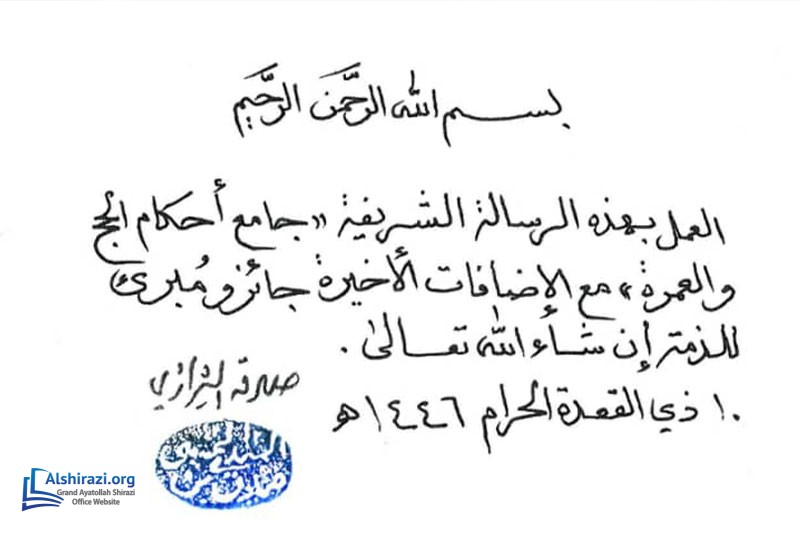 بسم الله الرَّحمَن الرَّحيم
العمل بهذه الرسالة الشريفة «جامع أحكام الحج
والعمرة» مع الإضافات الأخيرة جائز ومُبرئ
للذمة إن شاء الله تعالىٰ.
١٠ ذي القعدة الحرام ١٤٤٦هـ
صادق الشيرازي
Alshirazi.org
Grand Ayatollah Shirazi
Office Website